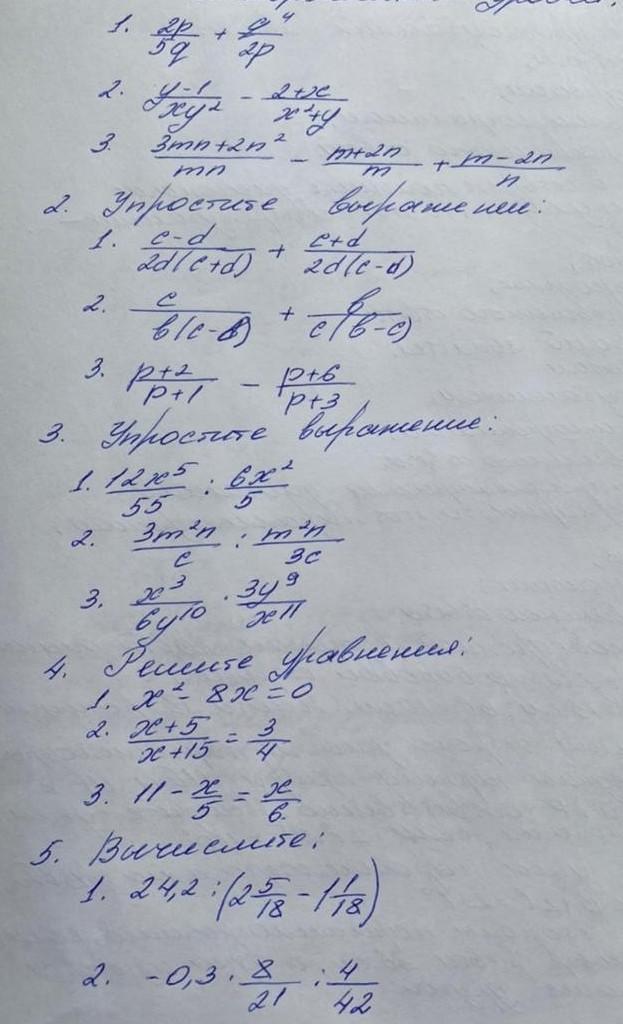 уровня.
1. 2p/5q + q⁴/2p
2. y-1/xy² - 2+x/x²+y
3. 3mn+2n²/mn - m+2n/m + m-2n/n
2. Упростите выражение:
1. c-d/2d(c+d) + c+d/2d(c-d)
2. c/в(c-в) + в/c(в-c)
3. p+2/p+1 - p+6/p+3
3. Упростите выражение:
1. 12x⁵/55 : 6x²/5
2. 3m²n/c : m²n/3c
3. x³/6y¹⁰ · 3y⁹/x¹¹
4. Решите уравнения:
1. x² - 8x = 0
2. x+5/x+15 = 3/4
3. 11 - x/5 = x/6
5. Вычислите:
1. 24,2 : (2 5/18 - 1 1/18)
2. -0,3 · 8/21 : 4/42